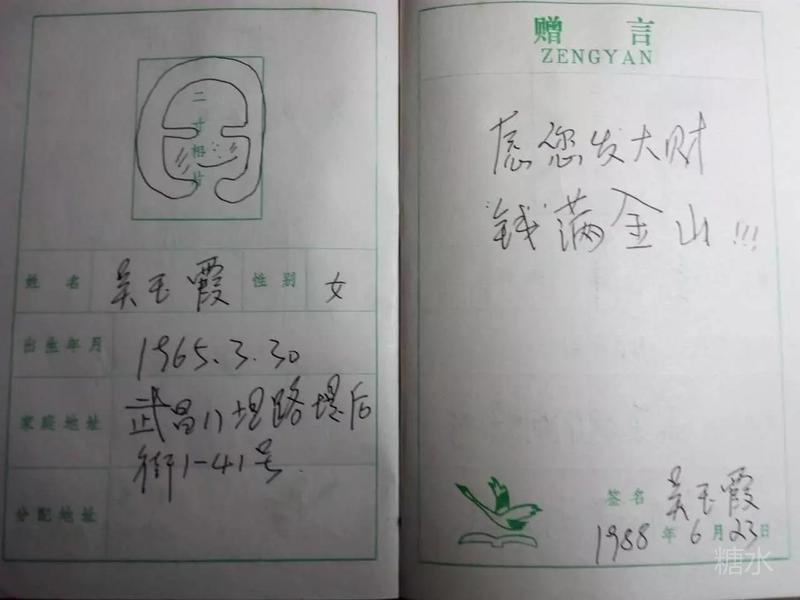 二
寸
相
片
姓 名 吴玉霞 性 别 女
出生年月 1965.3.30
家庭地址 武昌八坦路堤后
街1-41号
分配地址
赠 言
ZENGYAN
愿您发大财
钱满金山!!!
签名 吴玉霞
1988年6月23日
糖水